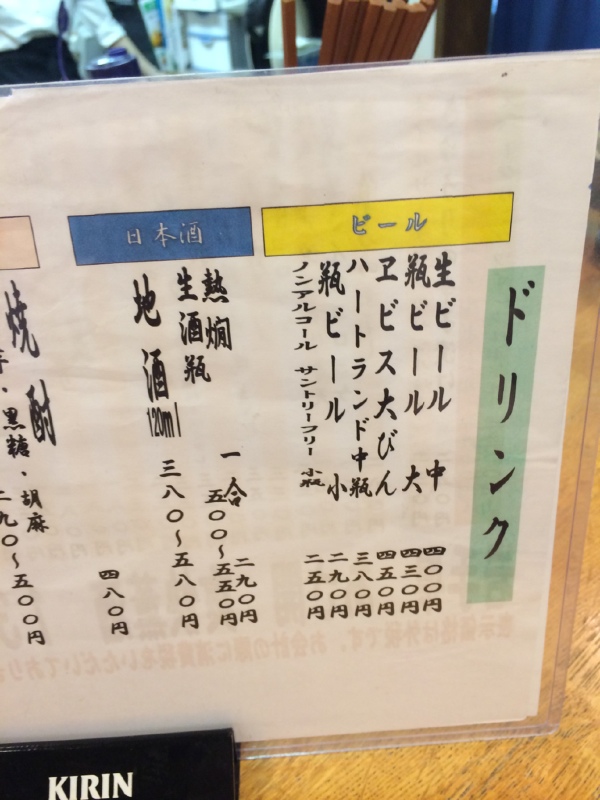 ドリンク
ビール
生ビール 中 四〇〇円
瓶ビール 大 四三〇円
ヱビス大びん 四五〇円
ハートランド中瓶 三八〇円
瓶ビール 小 二九〇円
ノンアルコール サントリーフリー 小瓶 二五〇円
日本酒
熱燗 一合 二九〇円
生酒瓶 五〇〇～五五〇円
地酒 120ml 三八〇～五八〇円
四八〇円
焼酎
・黒糖・胡麻
二九〇～五〇〇円
KIRIN